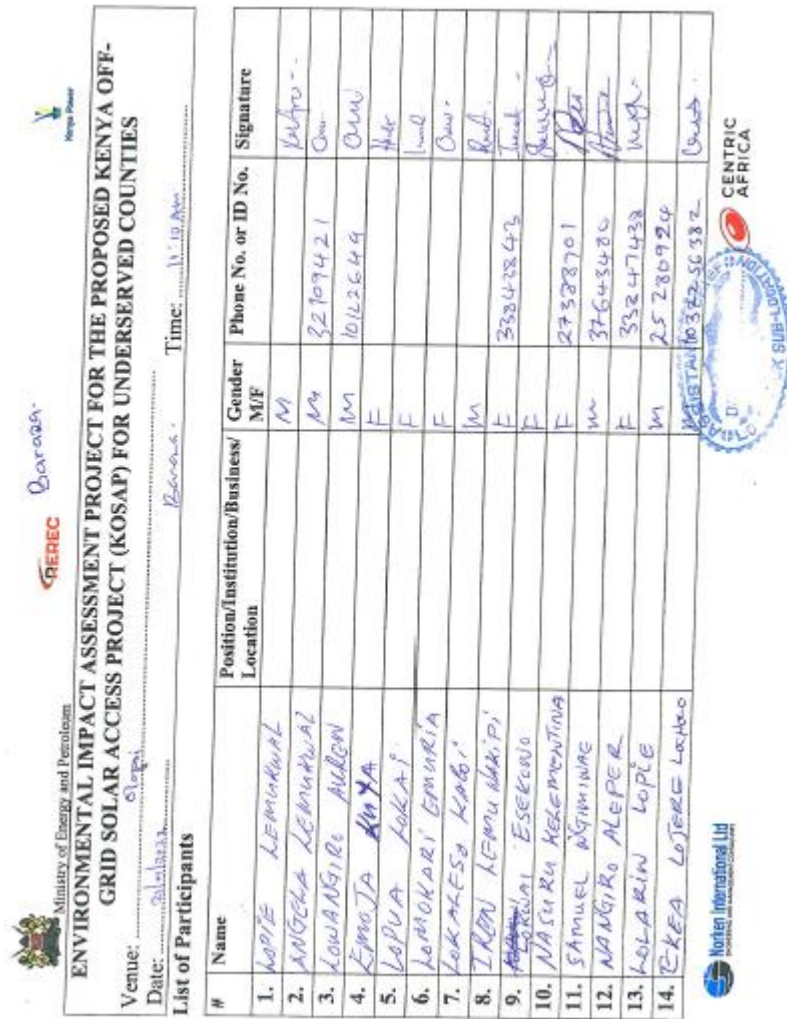 Baraza.
Ministry of Energy and Petroleum
REREC
Kenya Power
ENVIRONMENTAL IMPACT ASSESSMENT PROJECT FOR THE PROPOSED KENYA OFF-
GRID SOLAR ACCESS PROJECT (KOSAP) FOR UNDERSERVED COUNTIES
Venue:
Date: Baraza. Time: 11:10 Am
List of Participants
# Name Position/Institution/Business/ Location Gender M/F Phone No. or ID No. Signature
1. LOPIE LEMUKWAL M
2. ANGELA LEMUKWAL M 32109421
3. LOWANGIRO M 10122649
4. EMOJA KUYA F
5. LOPUA LOKAI F
6. LOMOKARI EMURIA F
7. LOKALESO KABOI M
8. IKON LEMUNARIPI F 33843243
9. LOKWAI ESEKONO F
10. NASURU KELEMENTINA F 27388701
11. SAMUEL NGIMINAE M 37643480
12. NANGIRO ALEPER F 33247438
13. LOLARIN LOPIE M 25280924
14. EKEA LOJERE
ASSISTANT
SUB-LOCATION
Norken International Ltd
CENTRIC
AFRICA